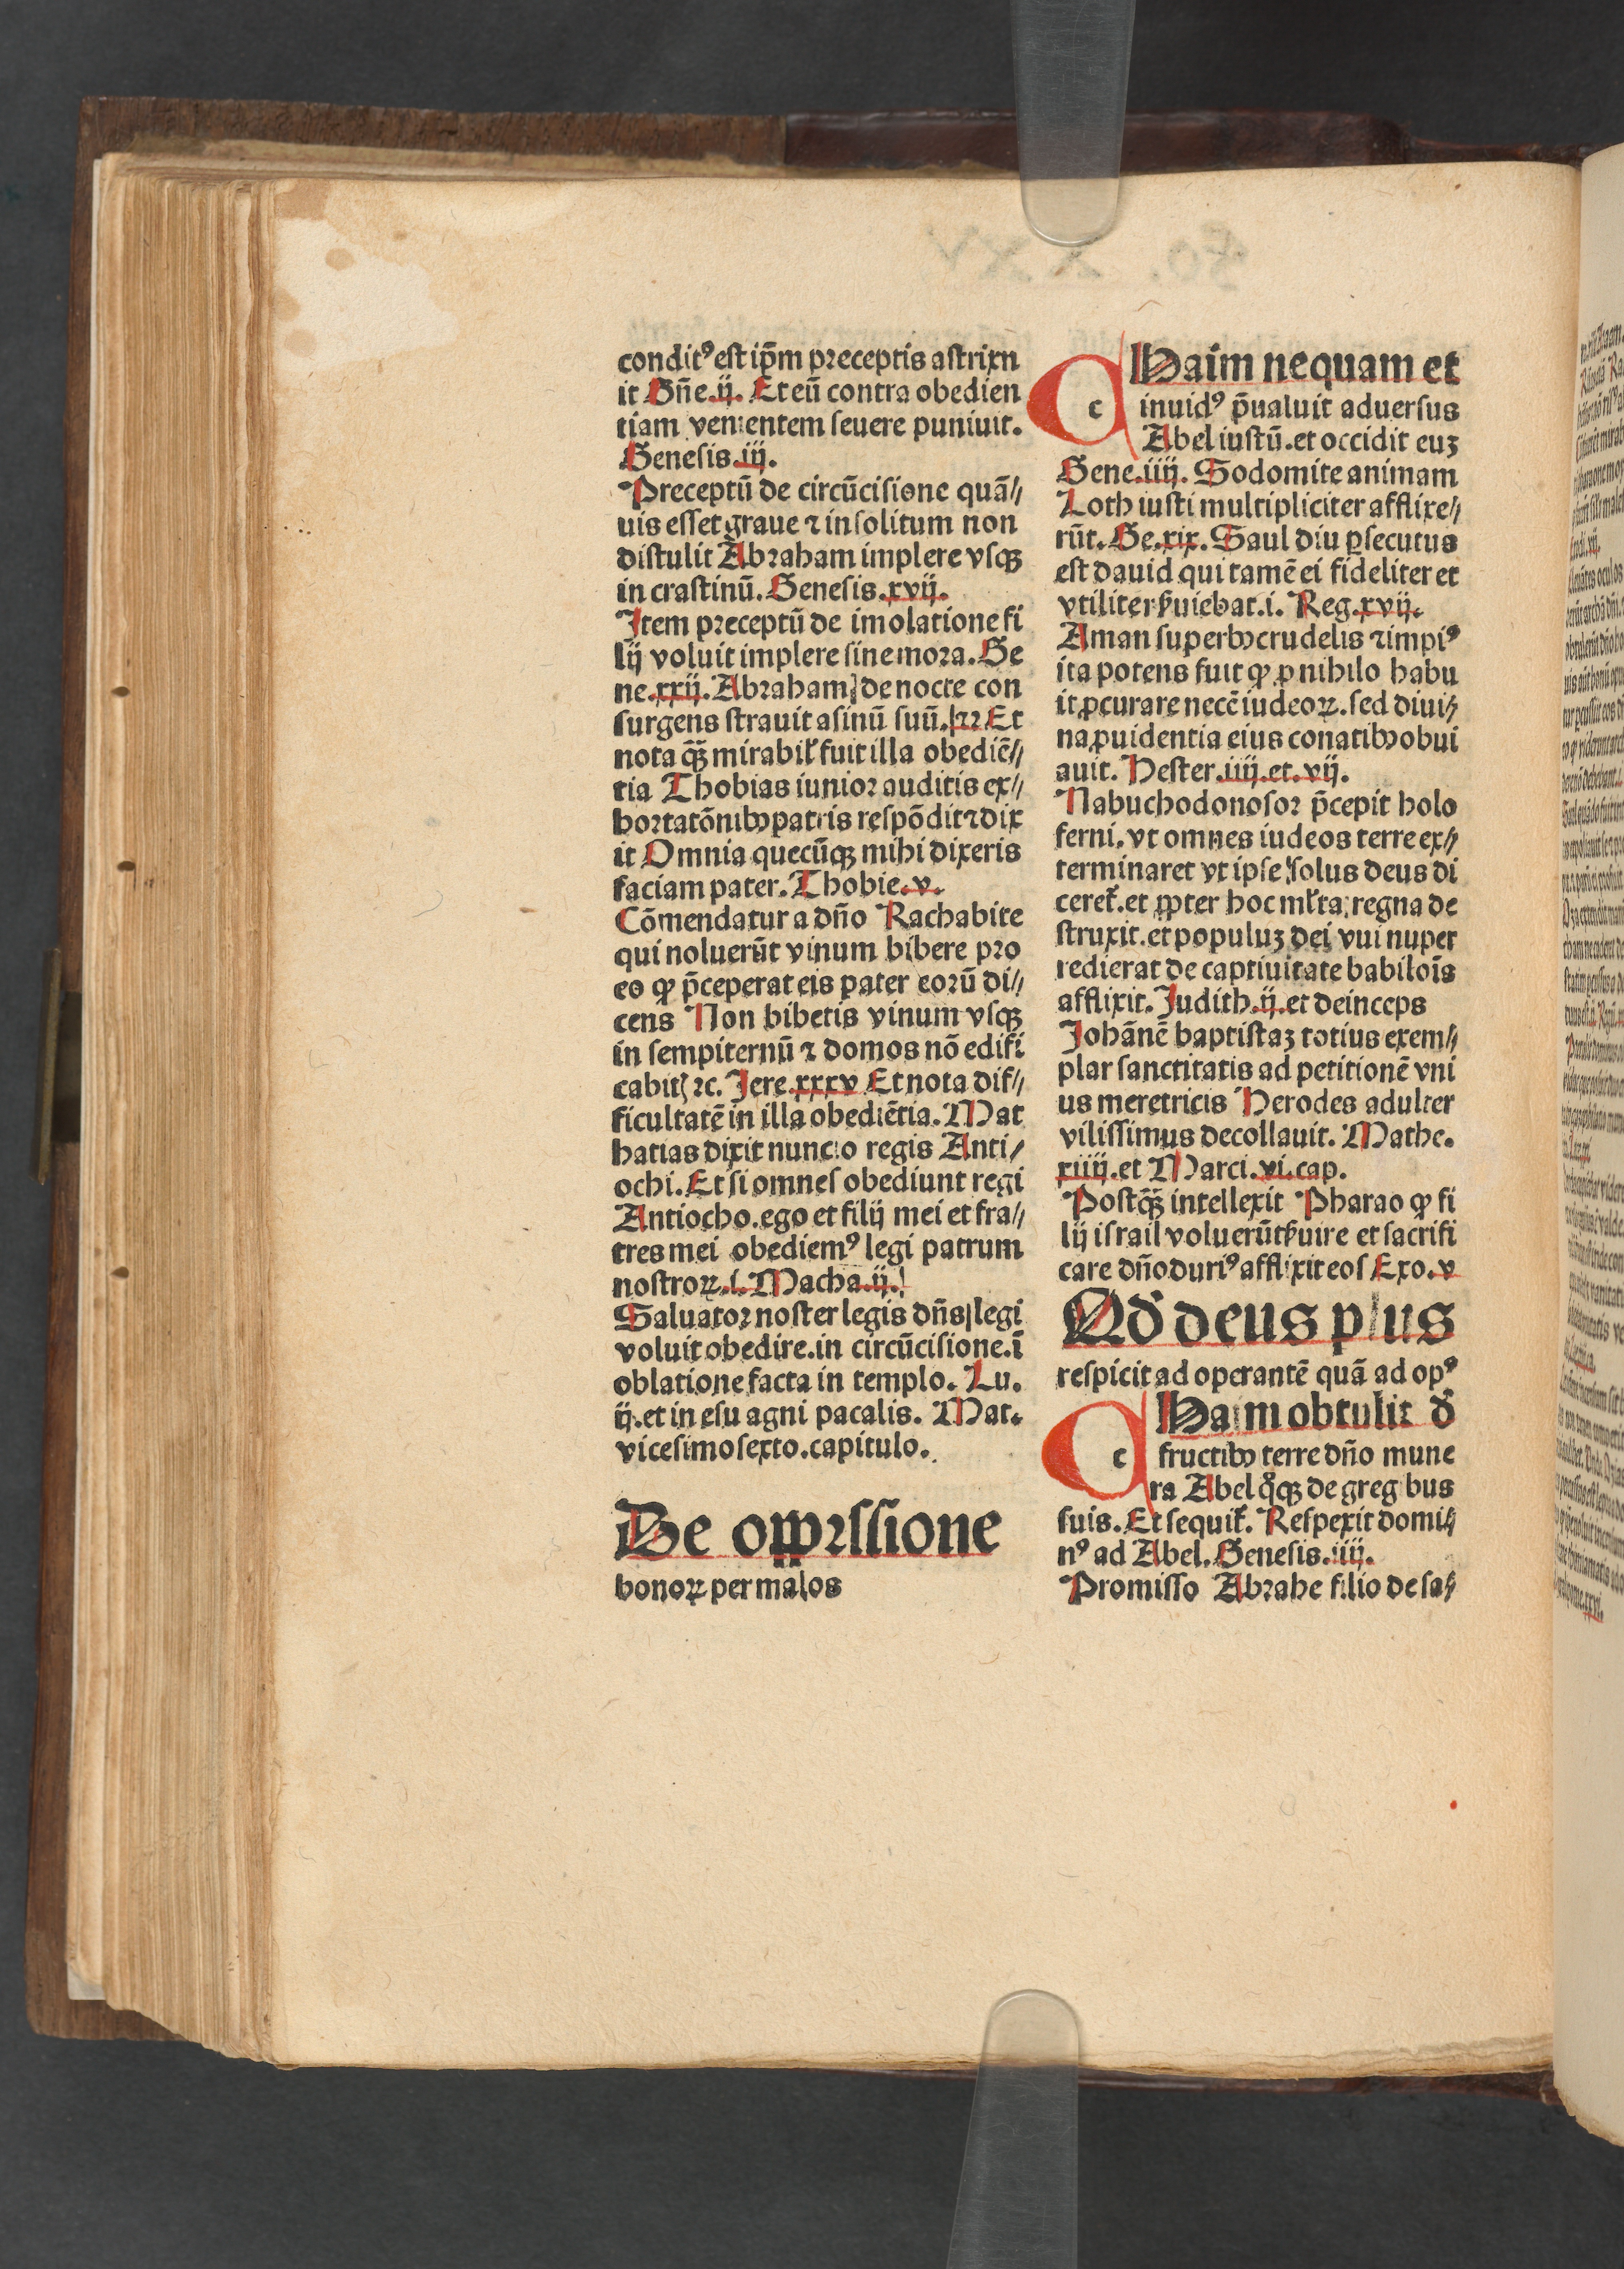 conditꝰ est ip̄m preceptis astrixn
it Gn̄e.ij. Et eū contra obedien
tiam venientem seuere puniuit.
Genesis.iij.
Preceptū de circūcisione quā//
uis esset graue ⁊ insolitum non
distulit Abraham implere vsqꝫ
in crastinū. Genesis.xvij.
Item preceptū de imolatione fi
lij voluit implere sine mora. Ge
ne.xxij. Abraham de nocte con
surgens strauit asinū suū.⁊⁊ Et
nota q̄ꝫ mirabił fuit illa obediē//
tia Thobias iunior auditis ex//
hortatōnibꝰ patris respōdit ⁊ dix
it Omnia quecūqꝫ mihi dixeris
faciam pater. Thobie.v.
Cōmendatur a dn̄o Rachabite
qui noluerūt vinum bibere pro
eo ꝙ p̄ceperat eis pater eorū di//
cens Non bibetis vinum vsqꝫ
in sempiternū ⁊ domos nō edifi
cabitꝭ ⁊c. Jere.xxxv Et nota dif//
ficultatē in illa obediētia. Mat
hatias dixit nuncio regis Anti/
ochi. Et si omnes obediunt regi
Antiocho.ego et filij mei et fra//
tres mei obediemꝰ legi patrum
nostroꝝ.i. Macha.ij.
Saluator noster legis dn̄s legi
voluit obedire.in circūcisione.ī
oblatione facta in templo. Lu.
ij.et in esu agni pacalis. Mat.
vicesimosexto.capitulo.
De oppꝛssione
bonoꝝ per malos
c Haim nequam et
inuidꝰ p̄ualuit aduersus
Abel iustū.et occidit euꝫ
Gene.iiij. Sodomite animam
Loth iusti multipliciter afflixe//
rūt. Ge.xix. Saul diu ꝑsecutus
est dauid qui tamē ei fideliter et
vtiliter ẜuiebat.i. Reg.xvij.
Aman superbꝰ crudelis ⁊ impiꝰ
ita potens fuit ꝙ ꝓ nihilo habu
it ꝓcurare necē iudeoꝝ.sed diui//
na ꝓuidentia eius conatibꝰ obui
auit. Hester.iiij.et.vij.
Nabuchodonosor p̄cepit holo
ferni.vt omnes iudeos terre ex//
terminaret vt ipse solus deus di
ceret̉.et ꝓpter hoc mľta regna de
struxit.et populuꝫ dei vui nuper
redierat de captiuitate babiloīs
afflixit. Judith.ij.et deinceps
Johānē baptistaꝫ totius exem//
plar sanctitatis ad petitionē vni
us meretricis Herodes adulter
vilissimus decollauit. Mathe.
xiiij.et Marci.vi.cap.
Postq̄ꝫ intellexit Pharao ꝙ fi
lij israil voluerūt ẜuire et sacrifi
care dn̄o duriꝰ afflixit eos Exo.v
Qd̓ deus plus
respicit ad operantē quā ad opꝰ
c Haim obtulit d̓
fructibꝰ terre dn̄o mune
ra Abel q̊qꝫ de gregibus
suis. Et sequit̉. Respexit domi//
nꝰ ad Abel. Genesis.iiij.
Promisso Abrahe filio de sa//